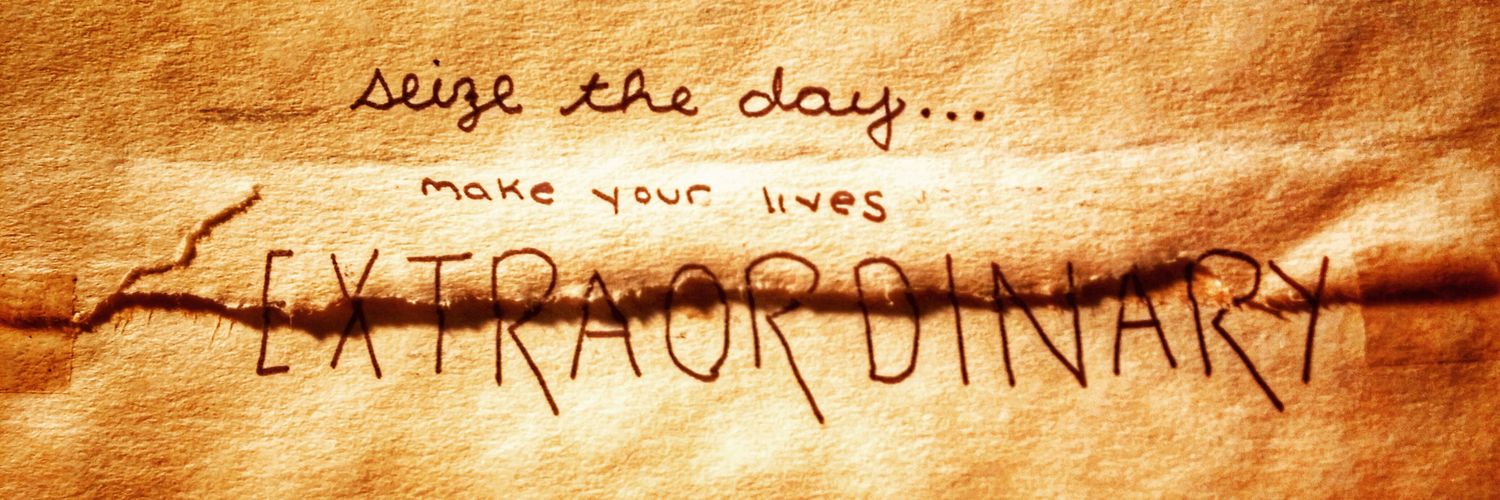 seize the day...
make your lives
EXTRAORDINARY